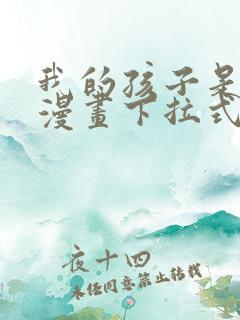 我的孩子是
漫畫下拉式
夜十四
未经同意禁止转载